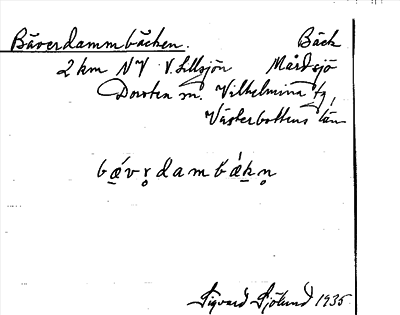 Bäverdammbäcken. Bäck
2 km NV V. Lillsjön Mårdsjö
Dorotea sn. Vilhelmina tg,
Västerbottens län
bǽ̱vr̥dambǽḵn̥
Sigvard Sjölund 1935